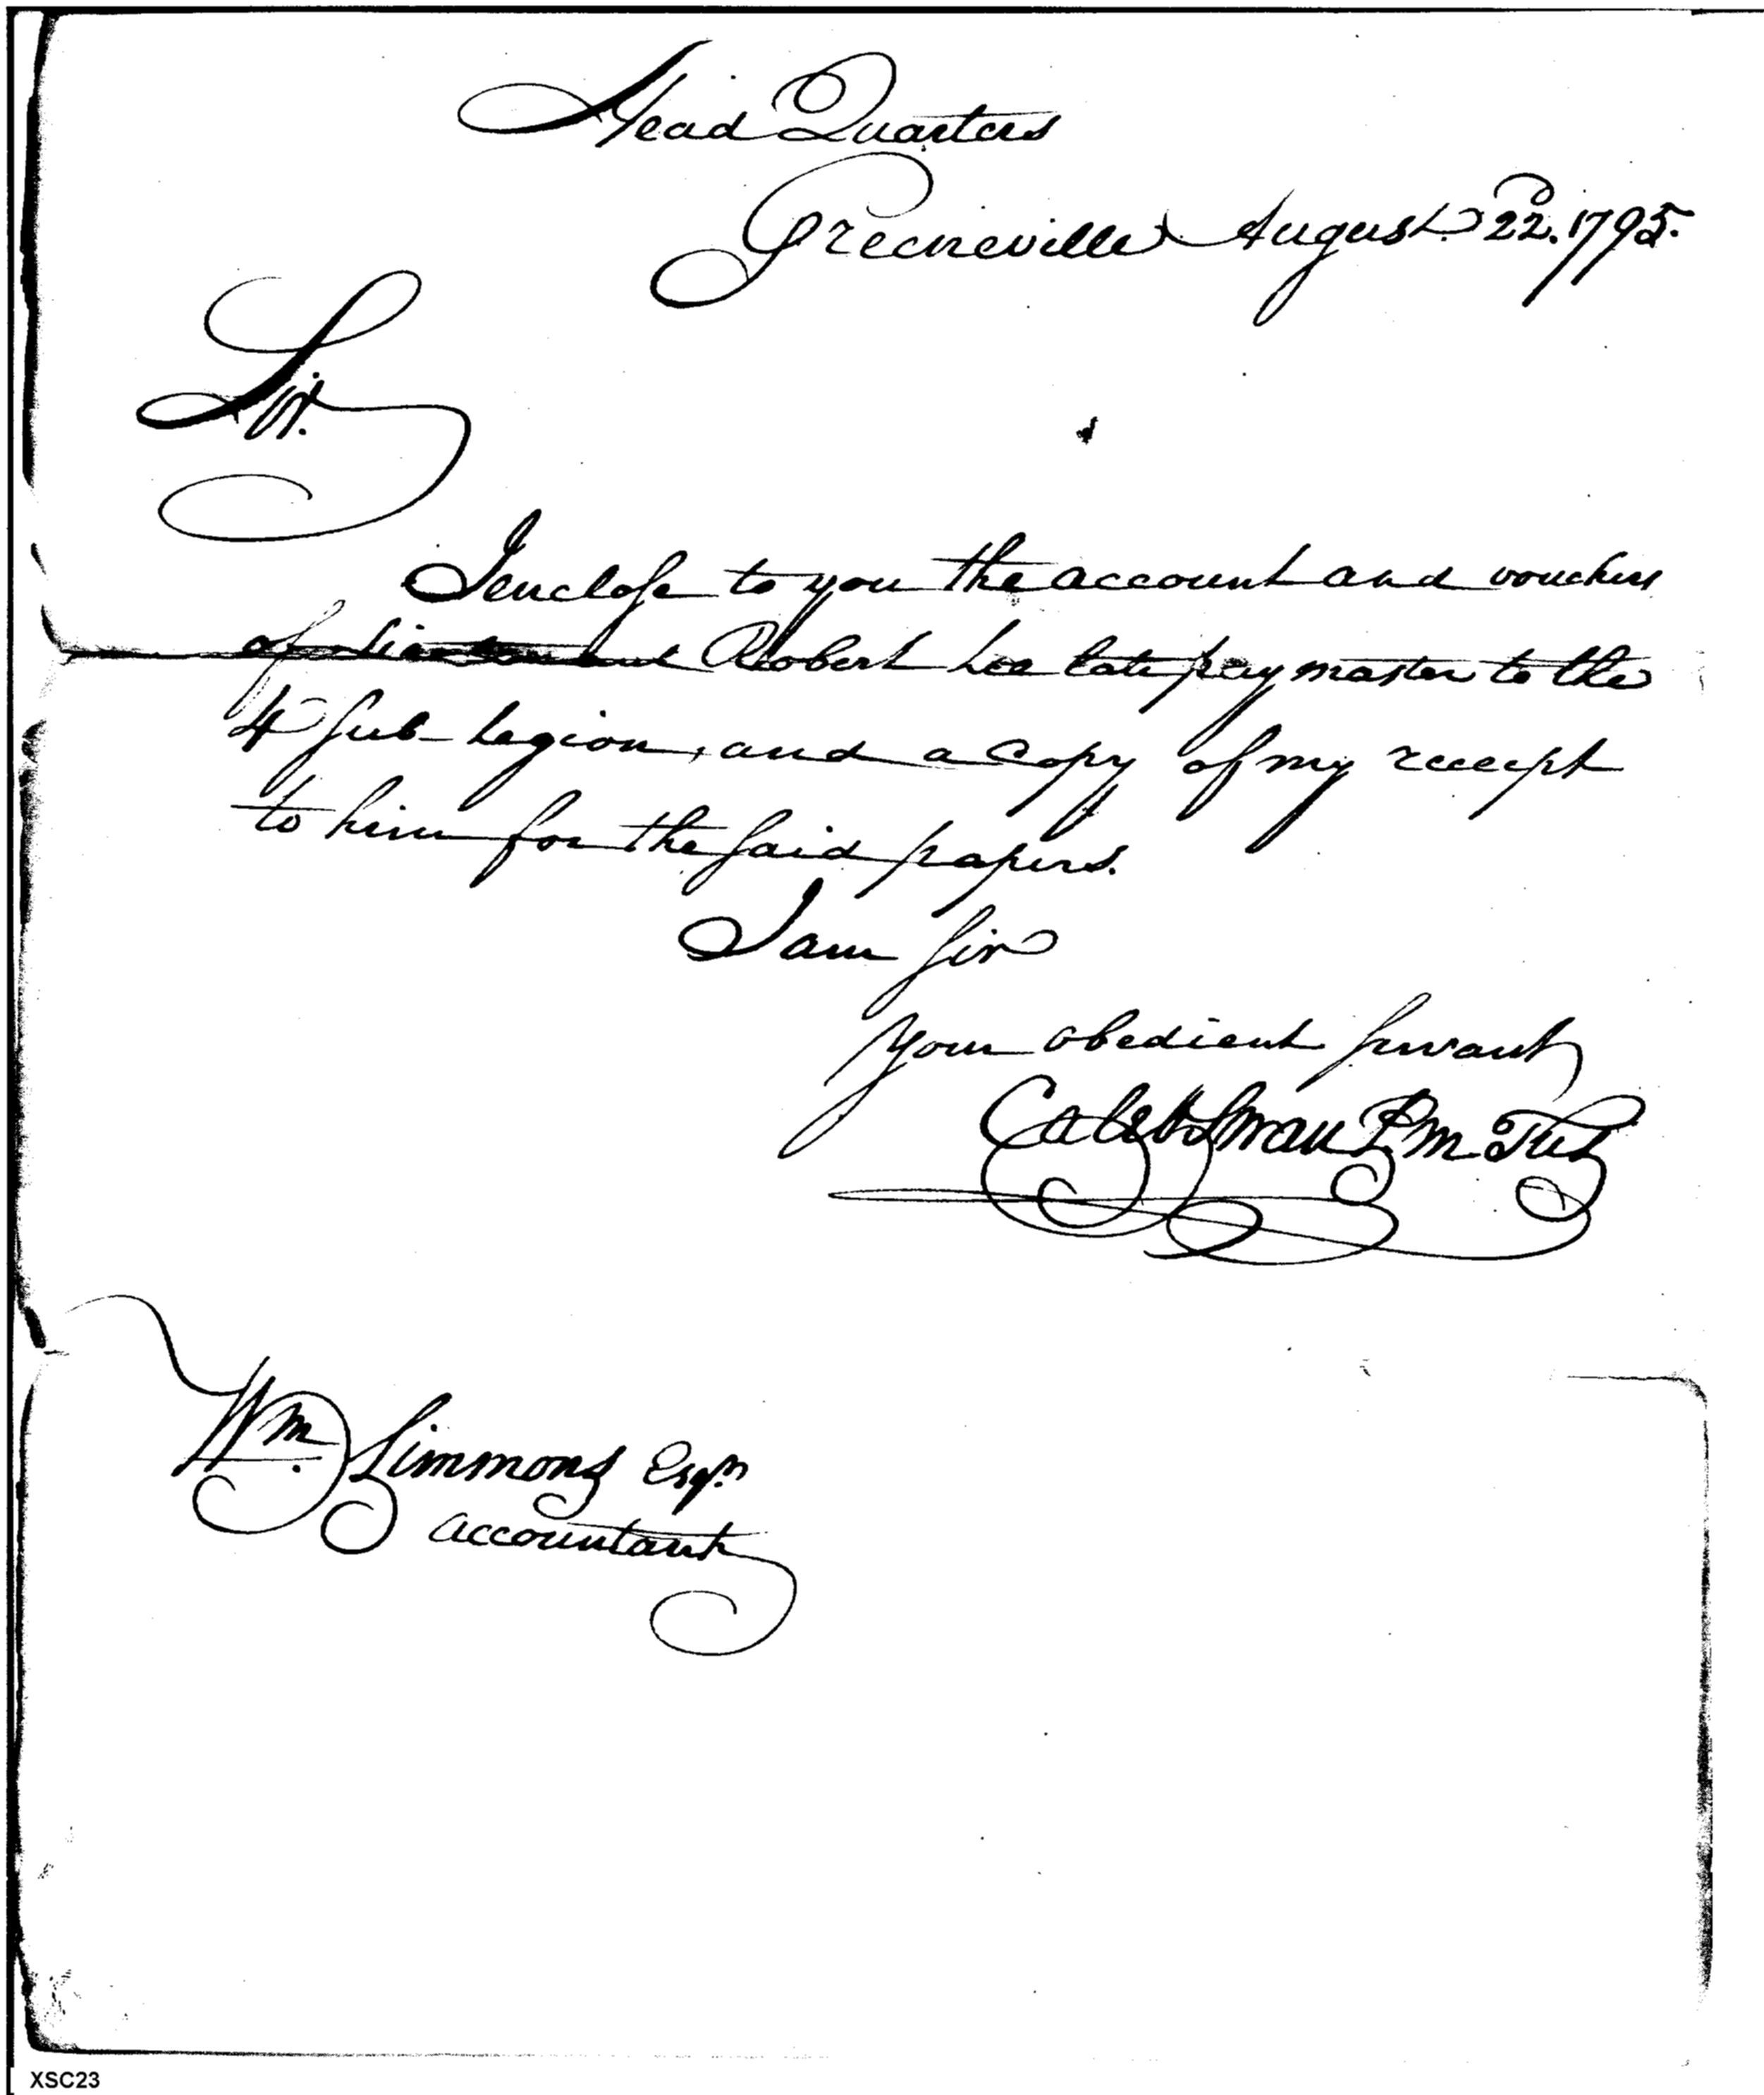 Head Quarters
Greeneville August 22d. 1795.
Sir.
I enclose to you the account and vouchers
of Lieutenant Robert Lee late paymaster to the
4 sub-legion, and a copy of my receipt
to him for the said papers.
I am sir
your obedient servant
Caleb Swan P. M. Tus
Wm. Simmons Esqr.
accountant
XSC23